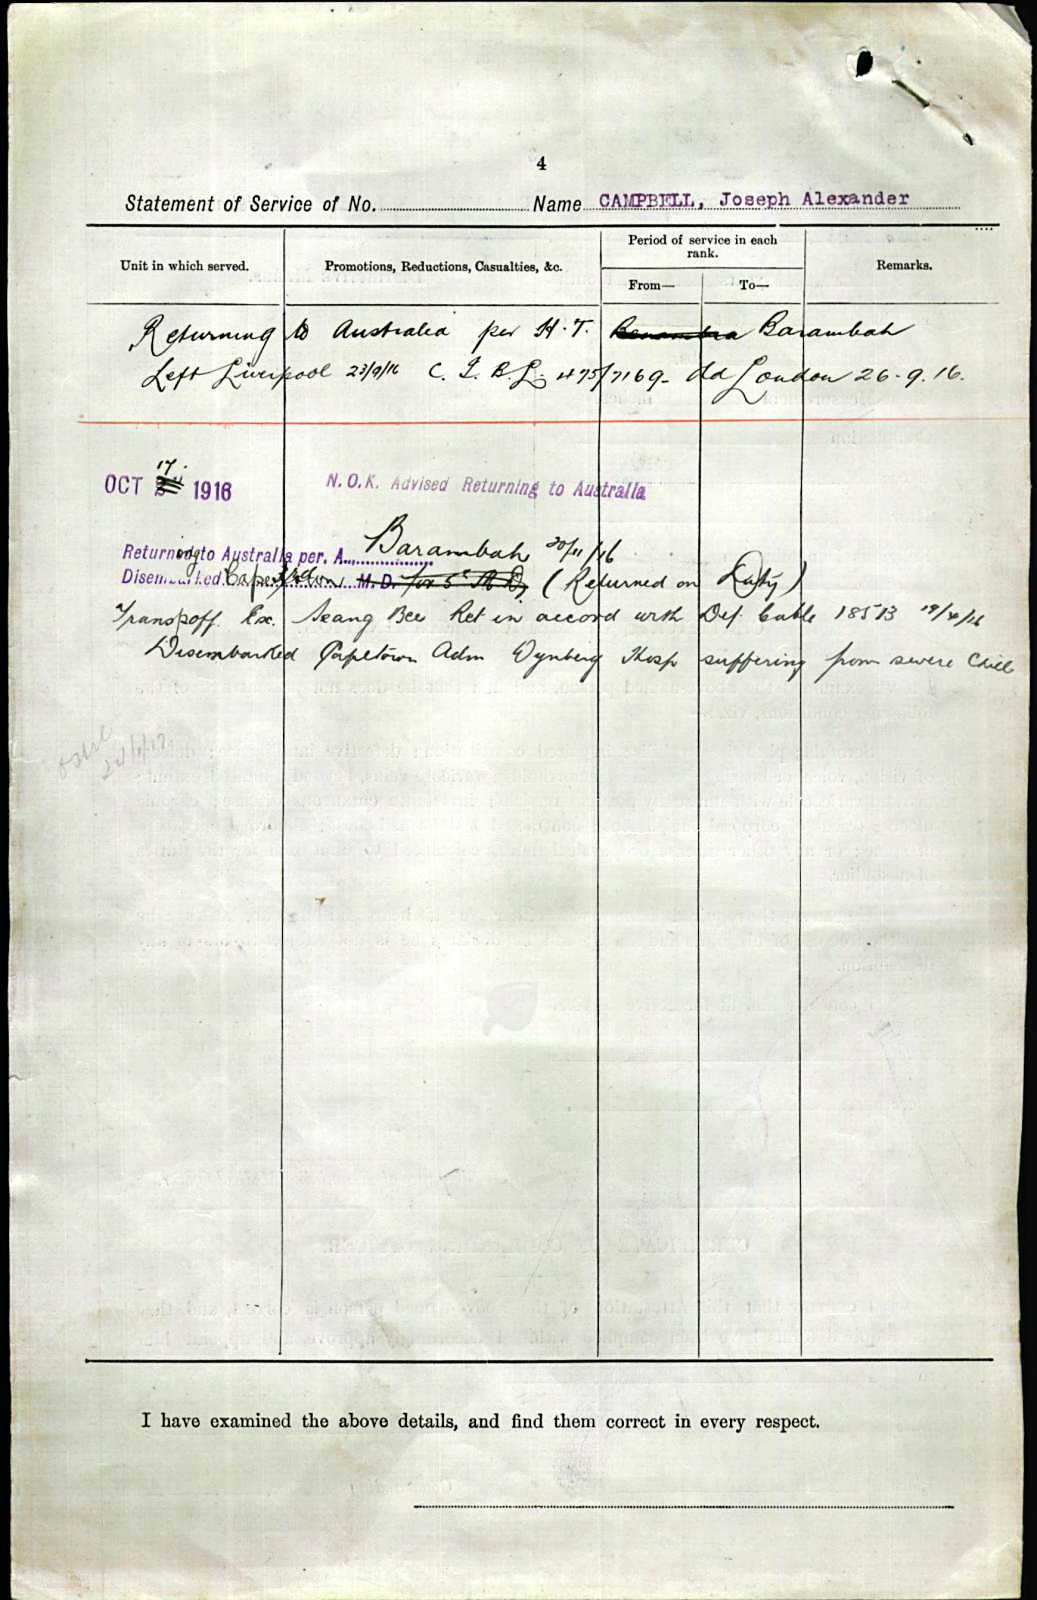 4
Statement of Service of No. Name CAMPBELL, Joseph Alexander
Unit in which served. Promotions, Reductions, Casualties, &c. Period of service in each rank. Remarks.
From— To—
Returning to Australia per H.T. Benambra Barambah
Left Liverpool 23/9/16 C. I. B. L. 475/7169- dd London 26.9.16.
OCT 17. 1916 N.O.K. Advised Returning to Australia
Returning to Australia per. A. Barambah 20/11/16
Disembarked Capetown M.D. for 5th M.D. (Returned on Duty)
Transp off. Ex. Seang Bee Ret in accord with Def. Cable 18513
Disembarked Capetown Adm Wynberg Hosp suffering from severe Chill
I have examined the above details, and find them correct in every respect.